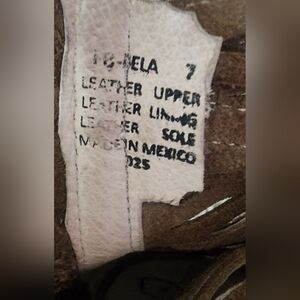 7
LEATHER UPPER
LEATHER LINING
LEATHER SOLE
MADE IN MEXICO
025